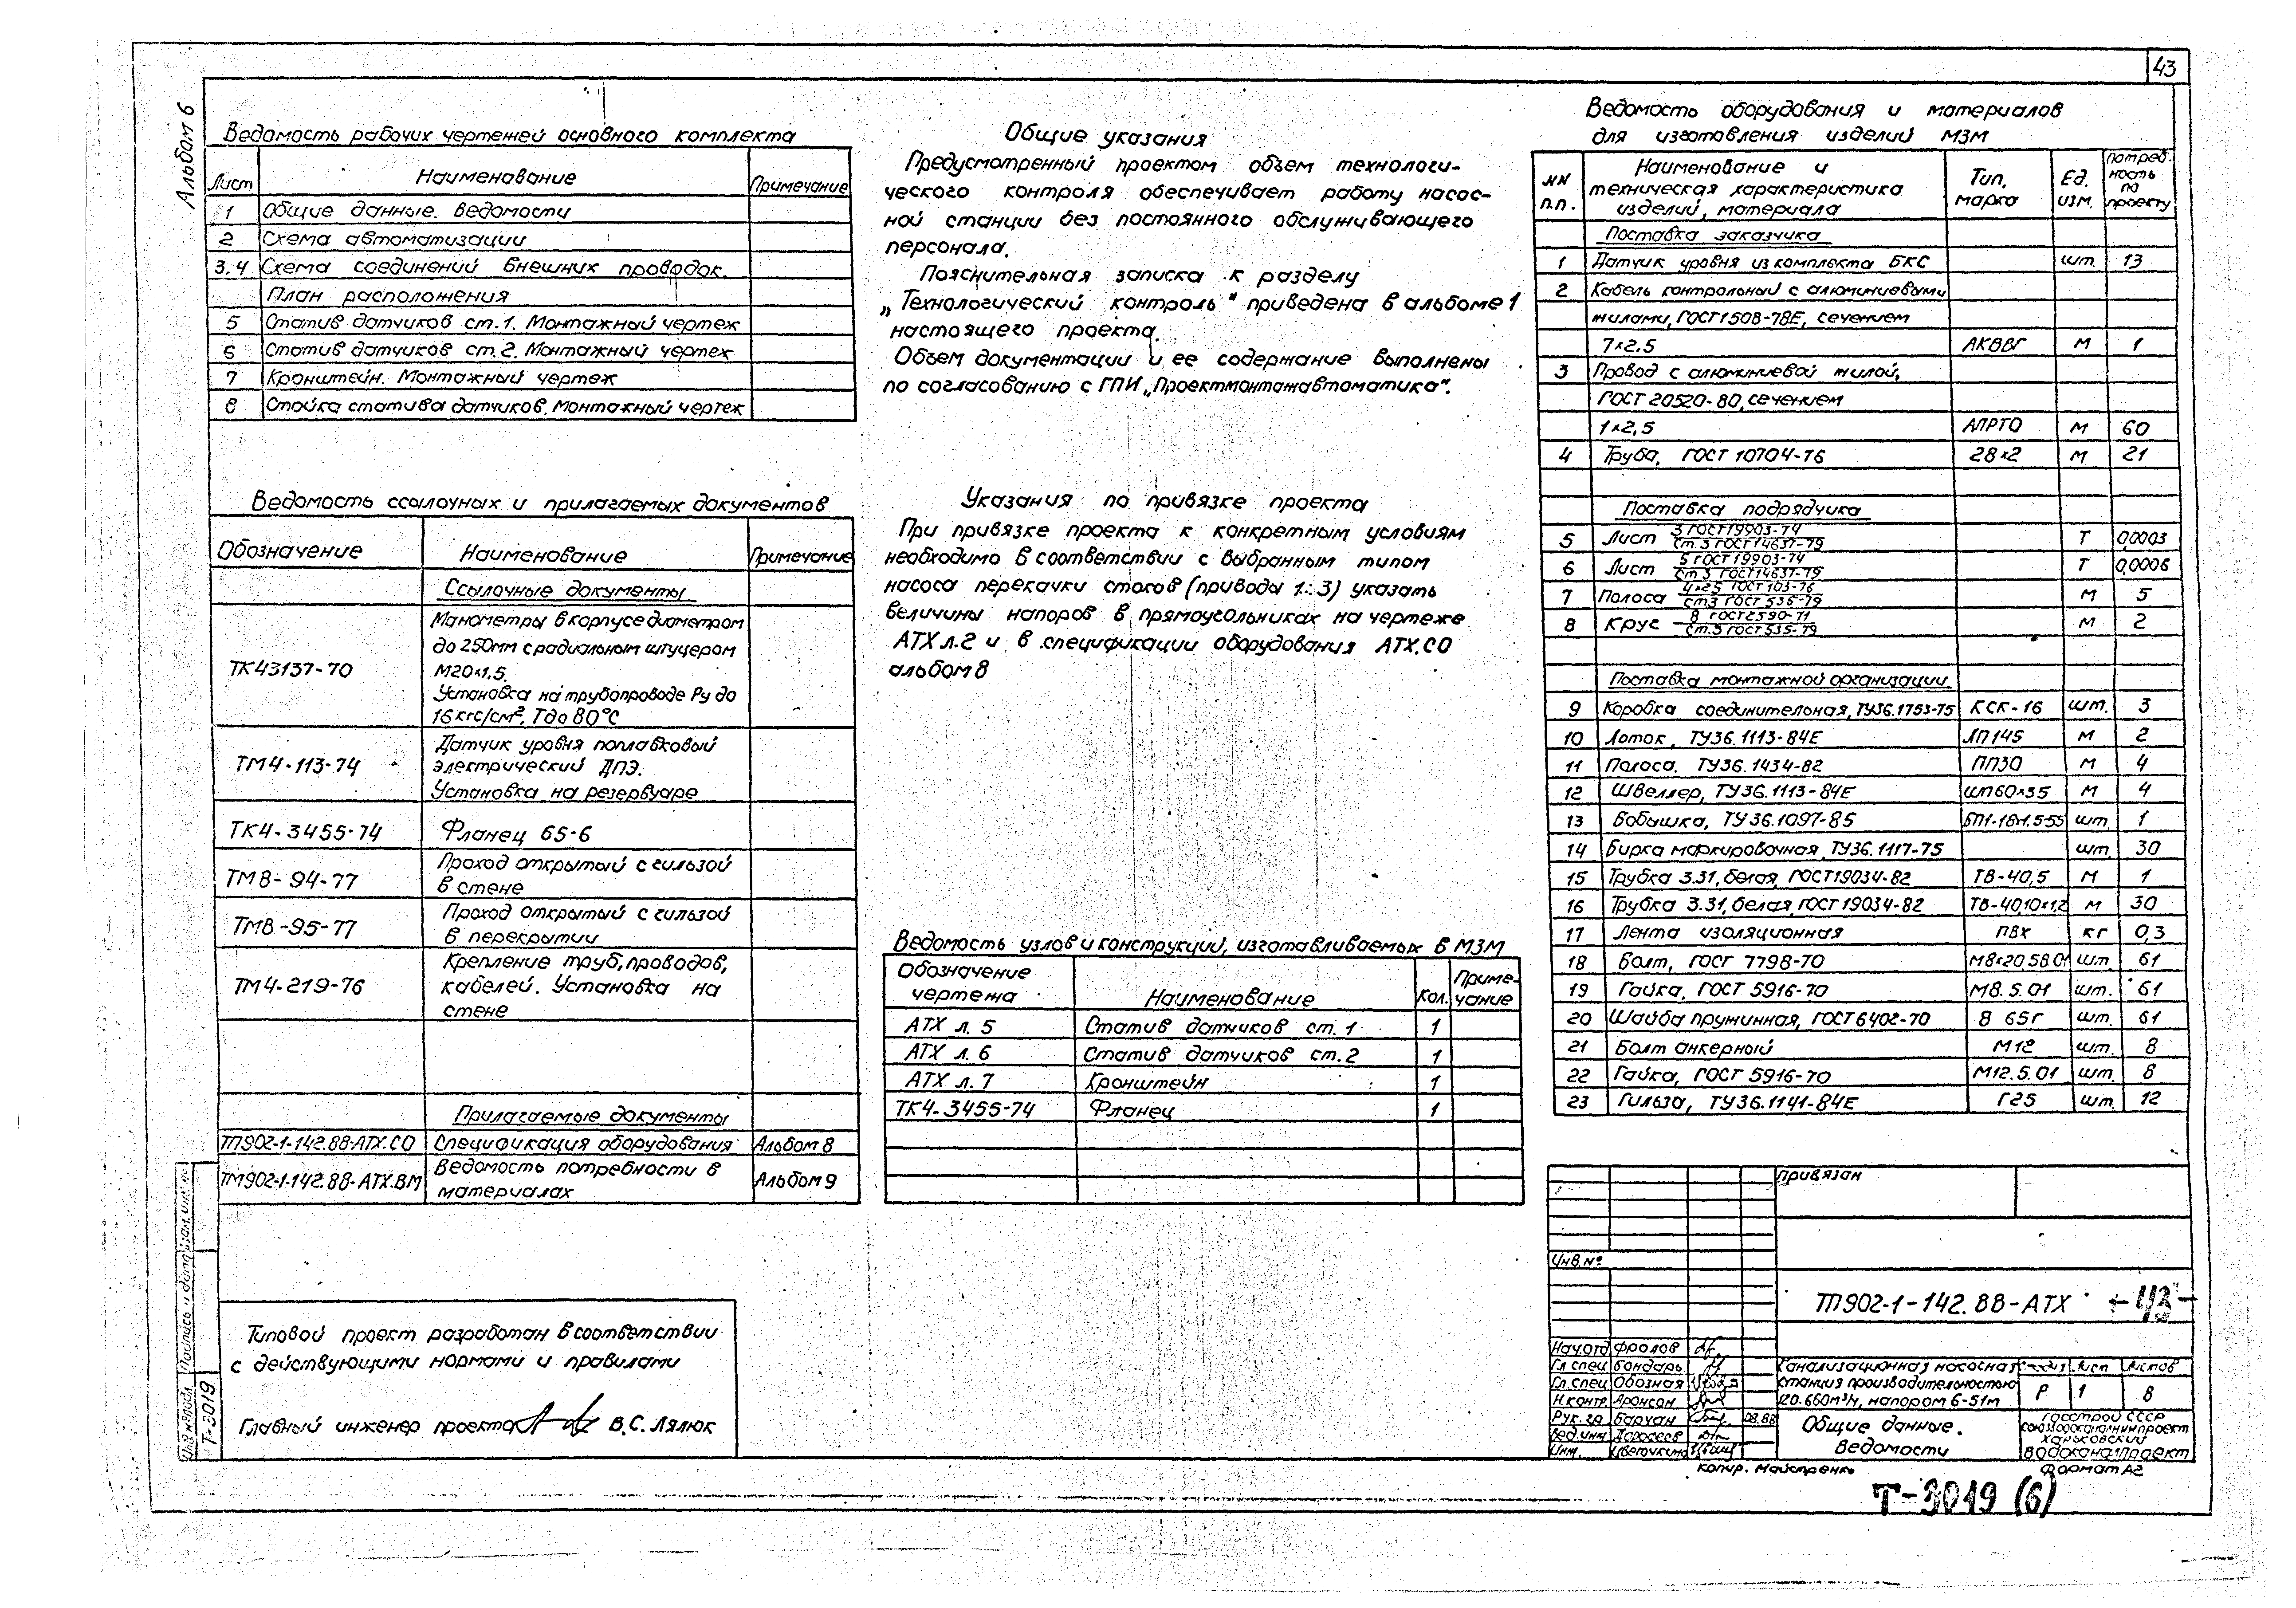 43
Альбом 6
Ведомость рабочих чертежей основного комплекта
Лист Наименование Примечание
1 Общие данные. Ведомости
2 Схема автоматизации
3.4 Схема соединений внешних проводок.
План расположения
5 Статив датчиков ст.1. Монтажный чертеж
6 Статив датчиков ст.2. Монтажный чертеж
7 Кронштейн. Монтажный чертеж
8 Стойка статива датчиков. Монтажный чертеж
Ведомость ссылочных и прилагаемых документов
Обозначение Наименование Примечание
Ссылочные документы
ТК43137-70 Манометры в корпусе диаметром
до 250мм с радиальным штуцером
М20х1,5.
Установка на трубопроводе Ру до
16 кгс/см², Т до 80°С
ТМ4-113-74 Датчик уровня поплавковый
электрический ДПЭ.
Установка на резервуаре
ТК4-3455-74 Фланец 65-6
ТМ8-94-77 Проход открытый с гильзой
в стене
ТМ8-95-77 Проход открытый с гильзой
в перекрытии
ТМ4-219-76 Крепление труб, проводов,
кабелей. Установка на
стене
Прилагаемые документы
ТП902-1-142.88-АТХ.СО Спецификация оборудования Альбом 8
ТМ902-1-142.88-АТХ.ВМ Ведомость потребности в
материалах Альбом 9
Типовой проект разработан в соответствии
с действующими нормами и правилами
Главный инженер проекта В.С. Лялюк
Общие указания
Предусмотренный проектом объем технологи-
ческого контроля обеспечивает работу насос-
ной станции без постоянного обслуживающего
персонала.
Пояснительная записка к разделу
„Технологический контроль" приведена в альбоме 1
настоящего проекта.
Объем документации и ее содержание выполнены
по согласованию с ГПИ „Проектмонтажавтоматика".
Указания по привязке проекта
При привязке проекта к конкретным условиям
необходимо в соответствии с выбранным типом
насоса перекачки стоков (приводы 1..3) указать
величины напоров в прямоугольниках на чертеже
АТХ л.2 и в спецификации оборудования АТХ.СО
альбом 8
Ведомость узлов и конструкций, изготавливаемых в МЗМ
Обозначение
чертежа Наименование Кол. Приме-
чание
АТХ л. 5 Статив датчиков ст. 1 1
АТХ л. 6 Статив датчиков ст. 2 1
АТХ л. 7 Кронштейн 1
ТК4-3455-74 Фланец 1
Ведомость оборудования и материалов
для изготовления изделий МЗМ
NN
п.п. Наименование и
техническая характеристика
изделий, материала Тип,
марка Ед.
изм. Потреб-
ность
по
проекту
Поставка заказчика
1 Датчик уровня из комплекта БКС шт. 13
2 Кабель контрольный с алюминиевыми
жилами, ГОСТ 1508-78Е, сечением
7х2.5 АКВВГ м 1
3 Провод с алюминиевой жилой,
ГОСТ 20520-80, сечением
1х2,5 АПРТО м 60
4 Труба, ГОСТ 10704-76 28х2 м 21
Поставка подрядчика
5 Лист 3 ГОСТ19903-74
ст.3 ГОСТ14637-79 Т 0,0003
6 Лист 5 ГОСТ19903-74
ст 3 ГОСТ14637-79 Т 0,0006
7 Полоса 4х25 ГОСТ 103-76
ст3 ГОСТ 535-79 м 5
8 Круг 8 ГОСТ2590-71
ст.3 ГОСТ535-79 м 2
Поставка монтажной организации
9 Коробка соединительная, ТУ36.1753-75 КСК-16 шт. 3
10 Лоток, ТУ36.1113-84Е ЛП145 м 2
11 Полоса. ТУ36.1434-82 ПП30 м 4
12 Швеллер, ТУ36.1113-84Е шп60х35 м 4
13 Бобышка, ТУ36.1097-85 БП1-18х1.5-55 шт. 1
14 Бирка маркировочная, ТУ36.1117-75 шт. 30
15 Трубка 3.31, белая, ГОСТ19034-82 ТВ-40,5 м 1
16 Трубка 3.31, белая, ГОСТ 19034-82 ТВ-40,10х1,2 м 30
17 Лента изоляционная ПВХ кг 0,3
18 Болт, ГОСТ 7798-70 М8х20.58.01 шт. 61
19 Гайка, ГОСТ 5916-70 М8.5.01 шт. 61
20 Шайба пружинная, ГОСТ6402-70 8 65Г шт. 61
21 Болт анкерный М12 шт. 8
22 Гайка, ГОСТ 5916-70 М12.5.01 шт. 8
23 Гильза, ТУ36.1141-84Е Г25 шт. 12
Привязан
Инв.№
ТП902-1-142.88-АТХ -43-
Нач.отд Фролов
Гл.спец Бондарь
Гл.спец Обозная
Н.контр. Аронсон
Рук.гр. Барчан 08.88
Вед.инж Дорофеев
Инж. Цветочкина
Канализационная насосная
станция производительностью
120-660м³/ч, напором 6-51м
Лист Листов
Р 1 8
Общие данные.
Ведомости
Госстрой СССР
Союзводоканалниипроект
Харьковский
Водоканалпроект
Копир. Майстренко Формат А2
Т-3019 (6)
Инв.№подл. Подпись и дата Взам. инв.№
Т-3019